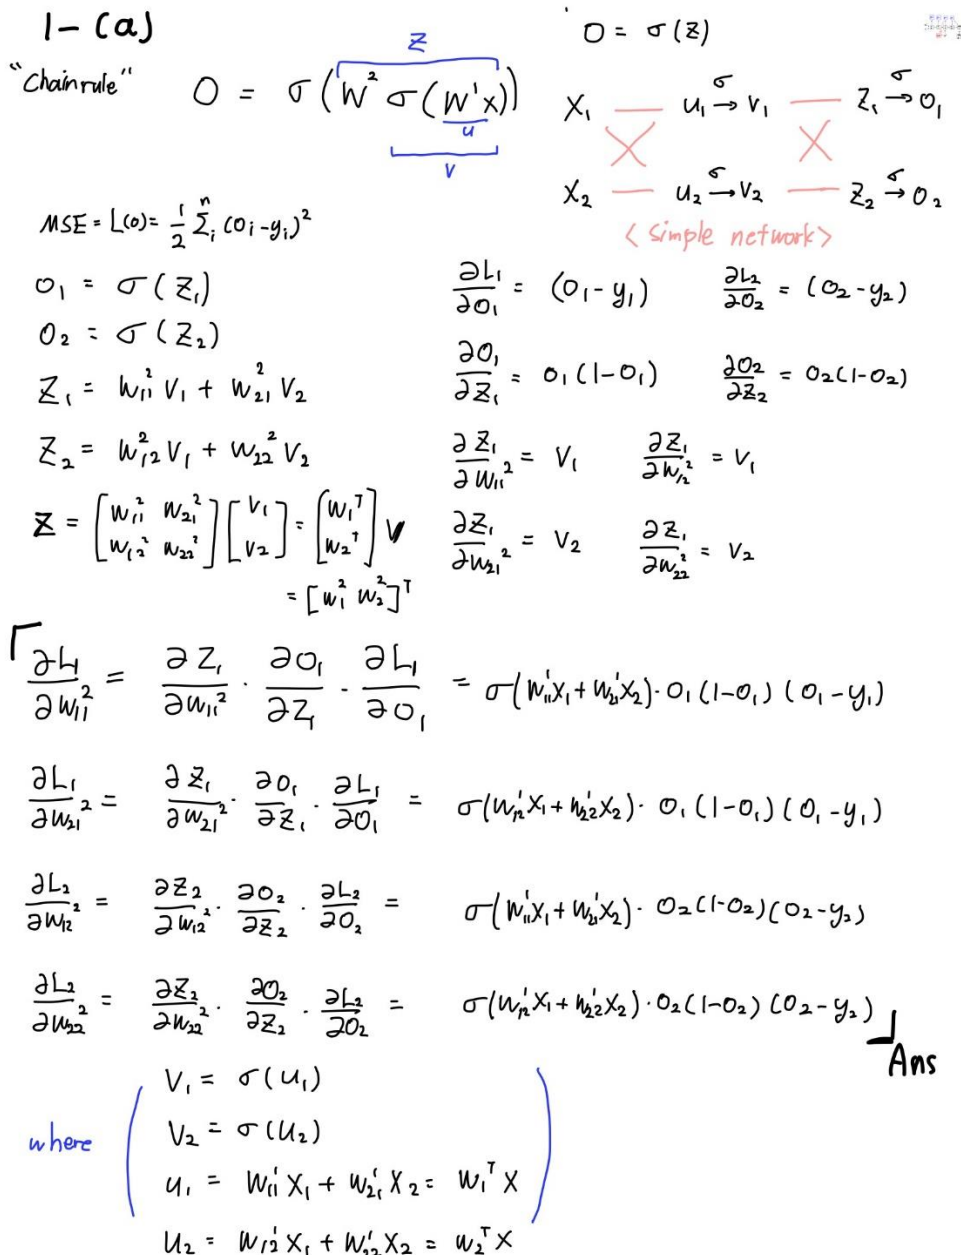 1-(a)
"Chain rule"
O = σ(W² σ(W¹x))
z
u
v
O = σ(z)
X₁ u₁ →σ v₁ z₁ →σ o₁
X₂ u₂ →σ v₂ z₂ →σ o₂
< simple network >
MSE = L(o) = 1/2 Σᵢⁿ (oᵢ - yᵢ)²
o₁ = σ(z₁)
o₂ = σ(z₂)
z₁ = w₁₁² v₁ + w₂₁² v₂
z₂ = w₁₂² v₁ + w₂₂² v₂
z = [w₁₁² w₂₁²; w₁₂² w₂₂²] [v₁; v₂] = [w₁ᵀ; w₂ᵀ] v
= [w₁² w₂²]ᵀ
∂L₁/∂o₁ = (o₁ - y₁) ∂L₂/∂o₂ = (o₂ - y₂)
∂o₁/∂z₁ = o₁(1-o₁) ∂o₂/∂z₂ = o₂(1-o₂)
∂z₁/∂w₁₁² = v₁ ∂z₁/∂w₁₂² = v₁
∂z₁/∂w₂₁² = v₂ ∂z₁/∂w₂₂² = v₂
∂L₁/∂w₁₁² = ∂z₁/∂w₁₁² · ∂o₁/∂z₁ · ∂L₁/∂o₁ = σ(w₁₁¹x₁ + w₂₁¹x₂) · o₁(1-o₁)(o₁-y₁)
∂L₁/∂w₂₁² = ∂z₁/∂w₂₁² · ∂o₁/∂z₁ · ∂L₁/∂o₁ = σ(w₁₂¹x₁ + w₂₂¹x₂) · o₁(1-o₁)(o₁-y₁)
∂L₂/∂w₁₂² = ∂z₂/∂w₁₂² · ∂o₂/∂z₂ · ∂L₂/∂o₂ = σ(w₁₁¹x₁ + w₂₁¹x₂) · o₂(1-o₂)(o₂-y₂)
∂L₂/∂w₂₂² = ∂z₂/∂w₂₂² · ∂o₂/∂z₂ · ∂L₂/∂o₂ = σ(w₁₂¹x₁ + w₂₂¹x₂) · o₂(1-o₂)(o₂-y₂)
Ans
where
v₁ = σ(u₁)
v₂ = σ(u₂)
u₁ = w₁₁¹ x₁ + w₂₁¹ x₂ = w₁ᵀ x
u₂ = w₁₂¹ x₁ + w₂₂¹ x₂ = w₂ᵀ x